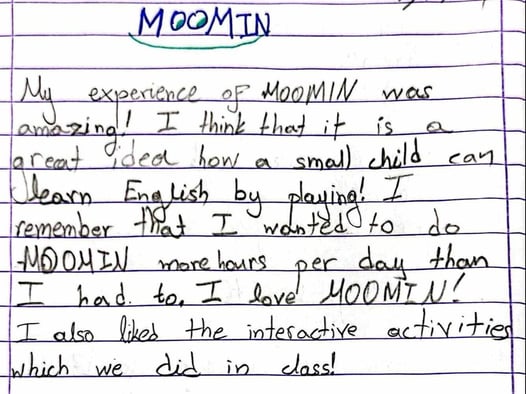 MOOMIN
My experience of MOOMIN was
amazing! I think that it is a
great idea how a small child can
learn English by playing! I
remember that I wanted to do
MOOMIN more hours per day than
I had to, I love MOOMIN!
I also liked the interactive activities
which we did in class!